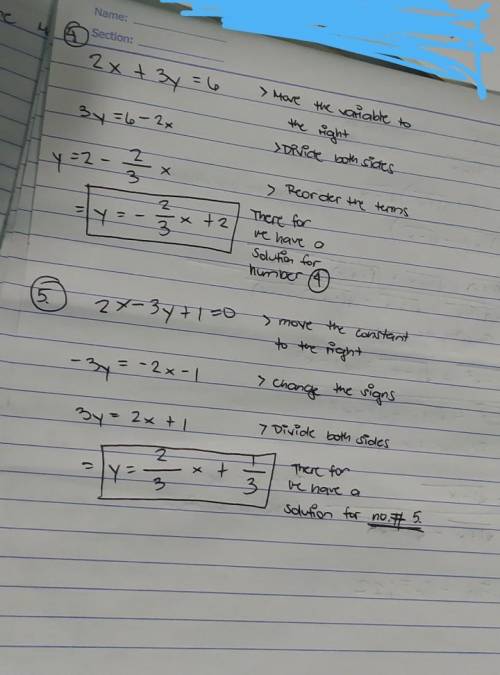 Name:
④ Section:
2x + 3y = 6 > Move the variable to
the right
3y = 6 - 2x > Divide both sides
y = 2 - 2/3 x > Reorder the terms
= y = - 2/3 x + 2 There for
we have a
solution for
number ④
⑤ 2x - 3y + 1 = 0 > move the constant
to the right
-3y = -2x - 1 > change the signs
3y = 2x + 1 > Divide both sides
= y = 2/3 x + 1/3 There for
we have a
solution for no.# 5.